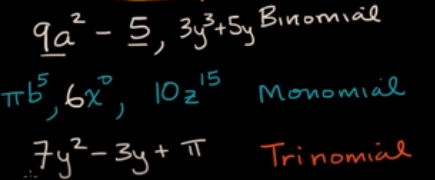 9a² - 5, 3y³+5y Binomial
πb⁵, 6x⁰, 10z¹⁵ Monomial
7y² - 3y + π Trinomial